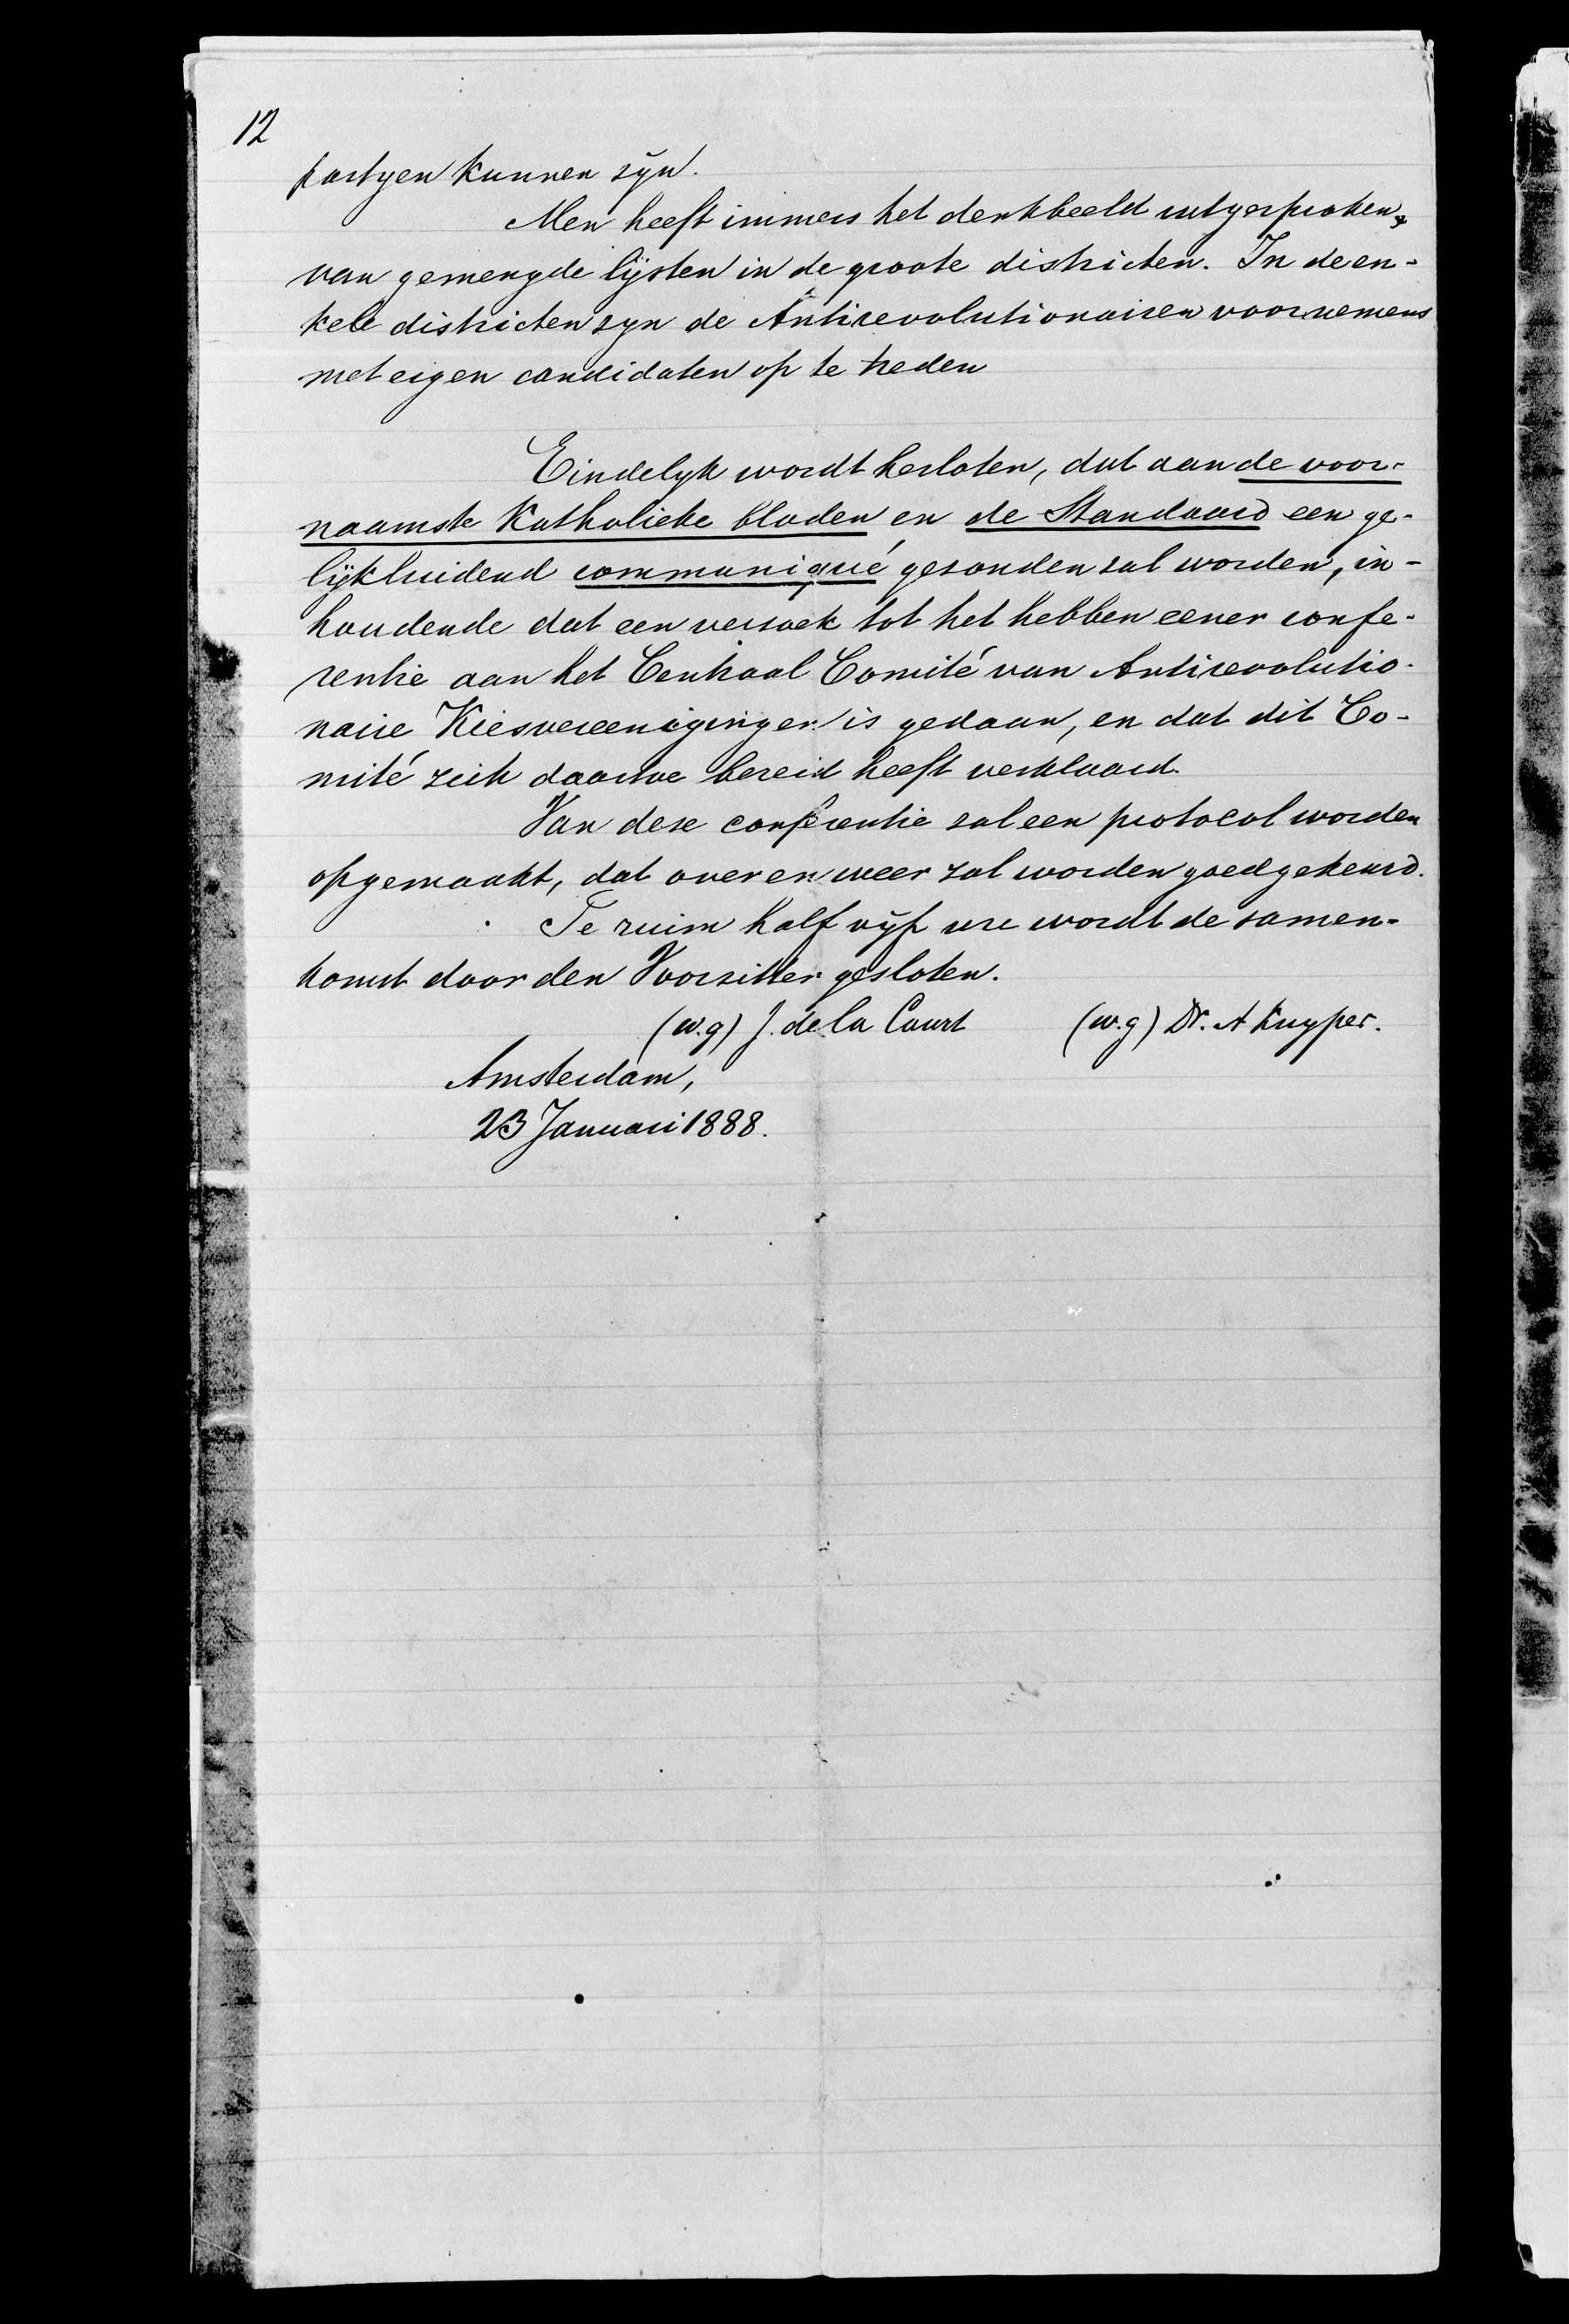 12
partyen kunnen zyn.
Men heeft immers het denkbeeld uitgesproken,
van gemengde lijsten in de groote districten. In de en-
kele districten zyn de Antirevolutionairen voornemens
met eigen candidaten op te treden
Eindelyk wordt besloten, dat aan de voor-
naamste Katholieke bladen en de Standaard een ge-
lijkluidend communiqué gezonden zal worden, in-
houdende dat een verzoek tot het hebben eener confe-
rentie aan het Centraal Comité van Antirevolutio-
naire Kiesvereenigingen is gedaan, en dat dit Co-
mité zich daartoe bereid heeft verklaard.
Van deze conferentie zal een protocol worden
opgemaakt, dat over en weer zal worden goedgekeurd.
Te ruim half vyf ure wordt de samen-
komst door den Voorzitter gesloten.
(w.g) J. de la Court (w.g) Dr. A Kuyper.
Amsterdam,
23 Januari 1888.